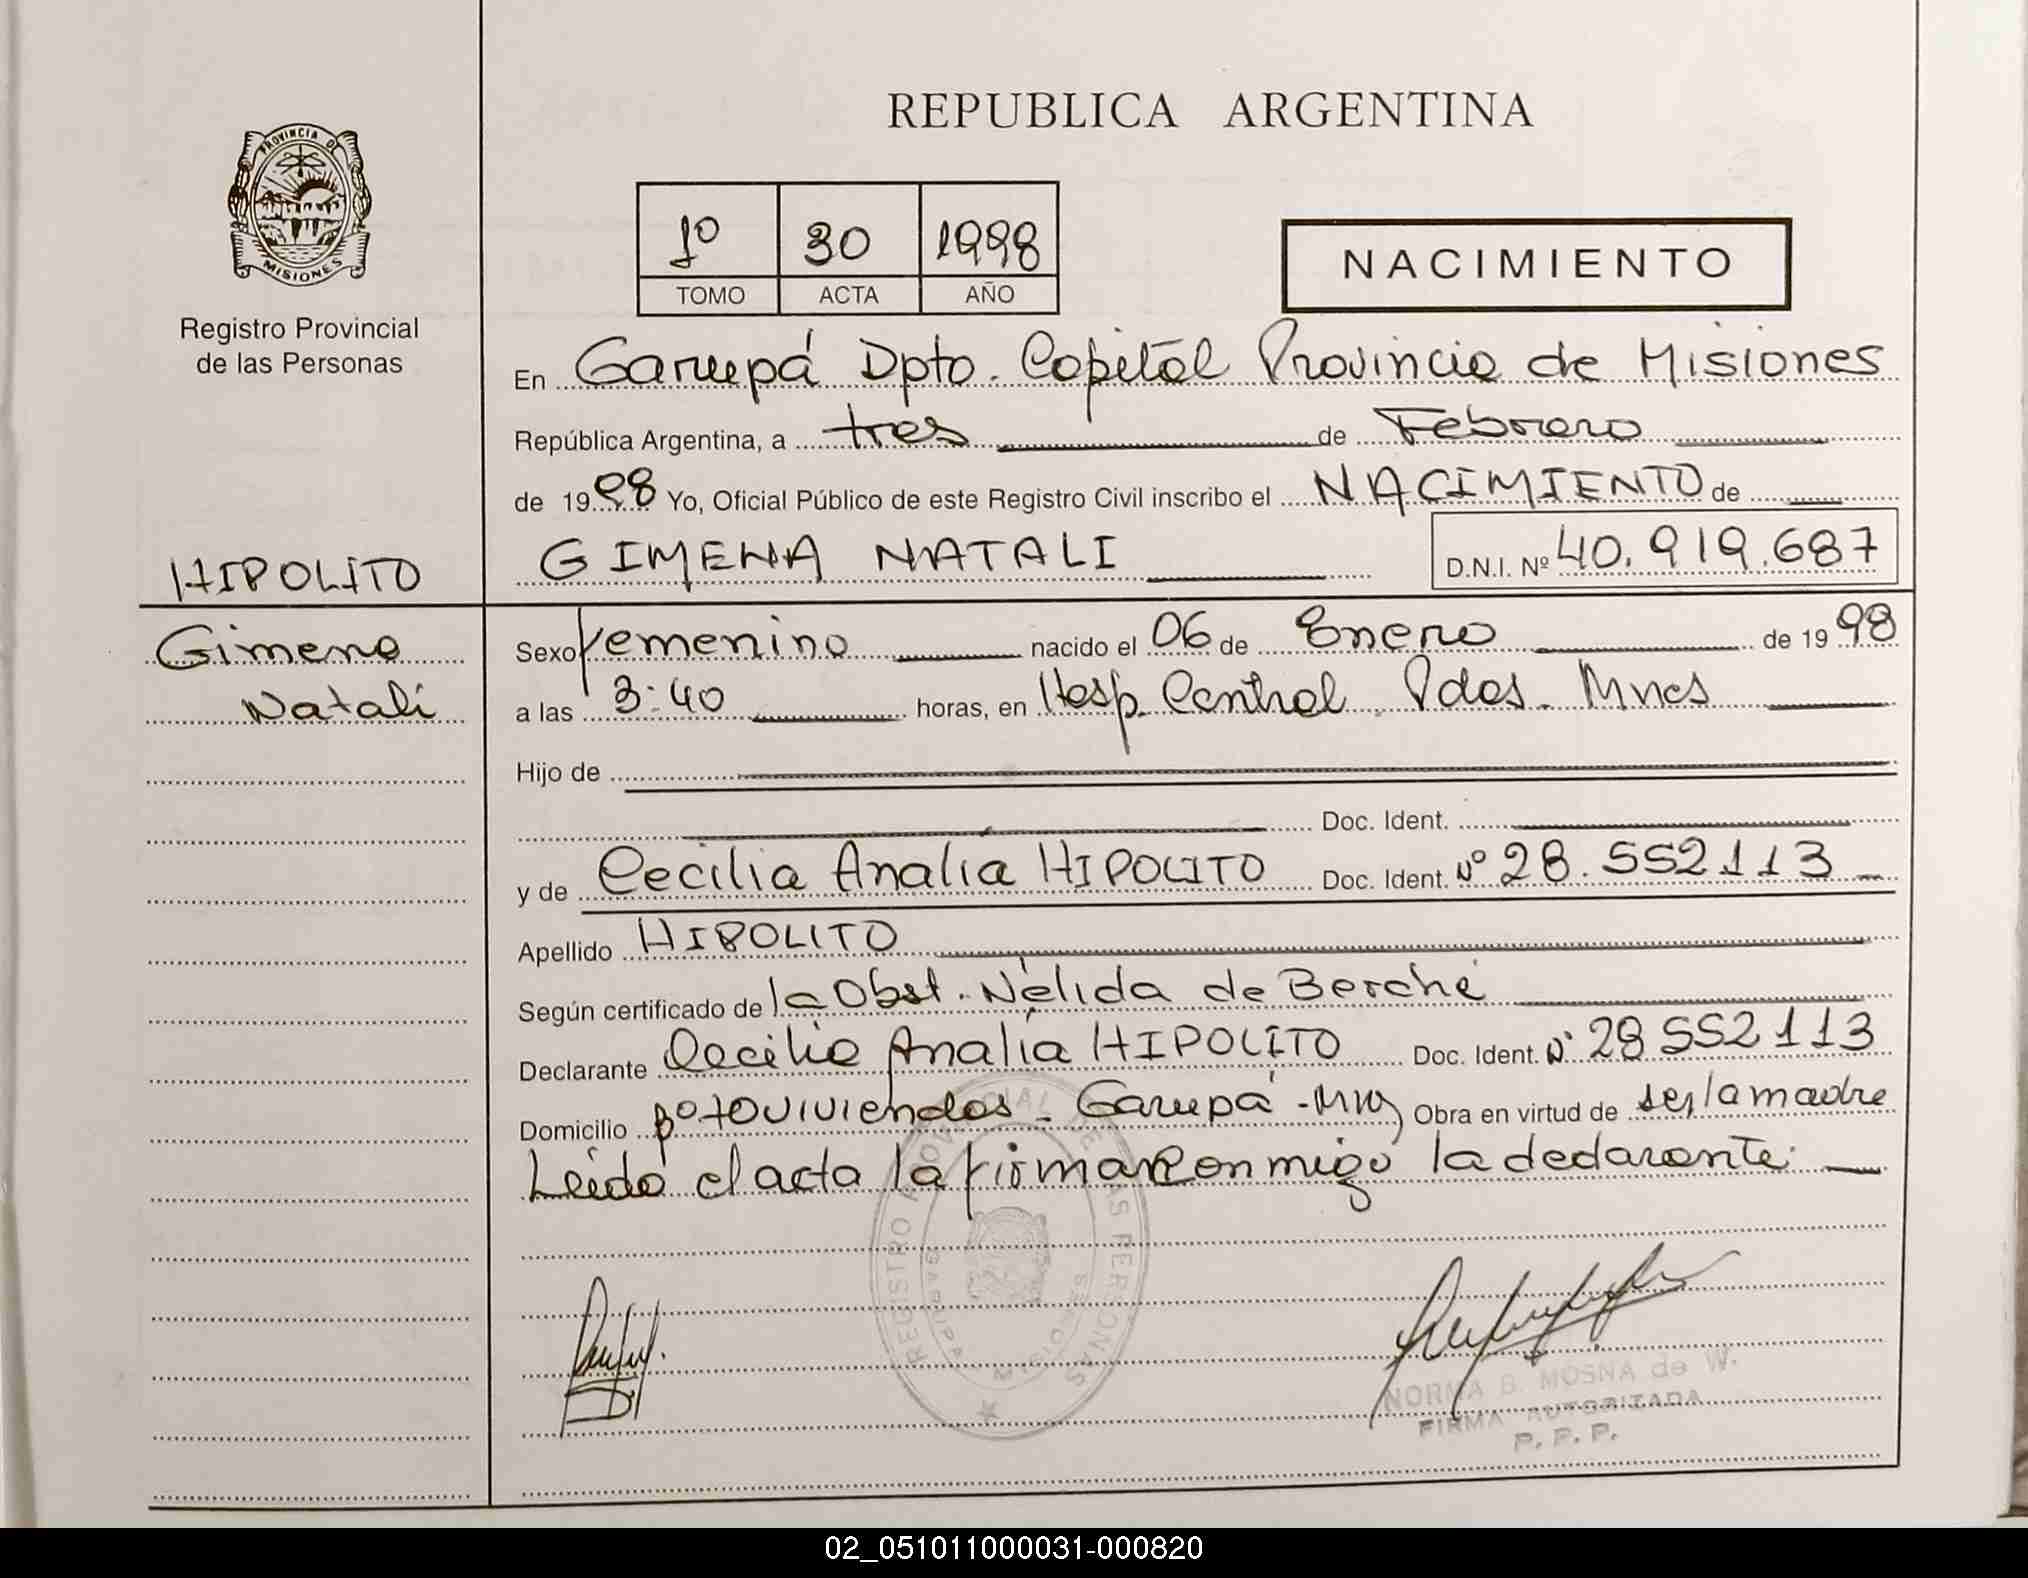 REPUBLICA ARGENTINA
PROVINCIA DE
MISIONES
Registro Provincial
de las Personas
1º 30 1998
TOMO ACTA AÑO
NACIMIENTO
En Garupá Dpto. Capital Provincia de Misiones
República Argentina, a tres de Febrero
de 1998 Yo, Oficial Público de este Registro Civil inscribo el NACIMIENTO de
HIPOLITO
GIMENA NATALI D.N.I. Nº 40.919.687
Gimena
Natali
Sexo femenino nacido el 06 de Enero de 1998
a las 3:40 horas, en Hosp. Central. Pdas. Mnes
Hijo de
Doc. Ident.
y de Cecilia Analía HIPOLITO Doc. Ident. Nº 28.552113
Apellido HIPOLITO
Según certificado de la Obst. Nélida de Berché
Declarante Cecilia Analía HIPOLITO Doc. Ident. Nº 28 552113
Domicilio Bº 70 viviendas - Garupá - Mnes Obra en virtud de ser la madre
Leída el acta la firman conmigo la declarante.
REGISTRO PROVINCIAL DE LAS PERSONAS
GARUPA MISIONES
NORMA B. MOSNA de W.
FIRMA AUTORIZADA
P. P. P.
02_051011000031-000820